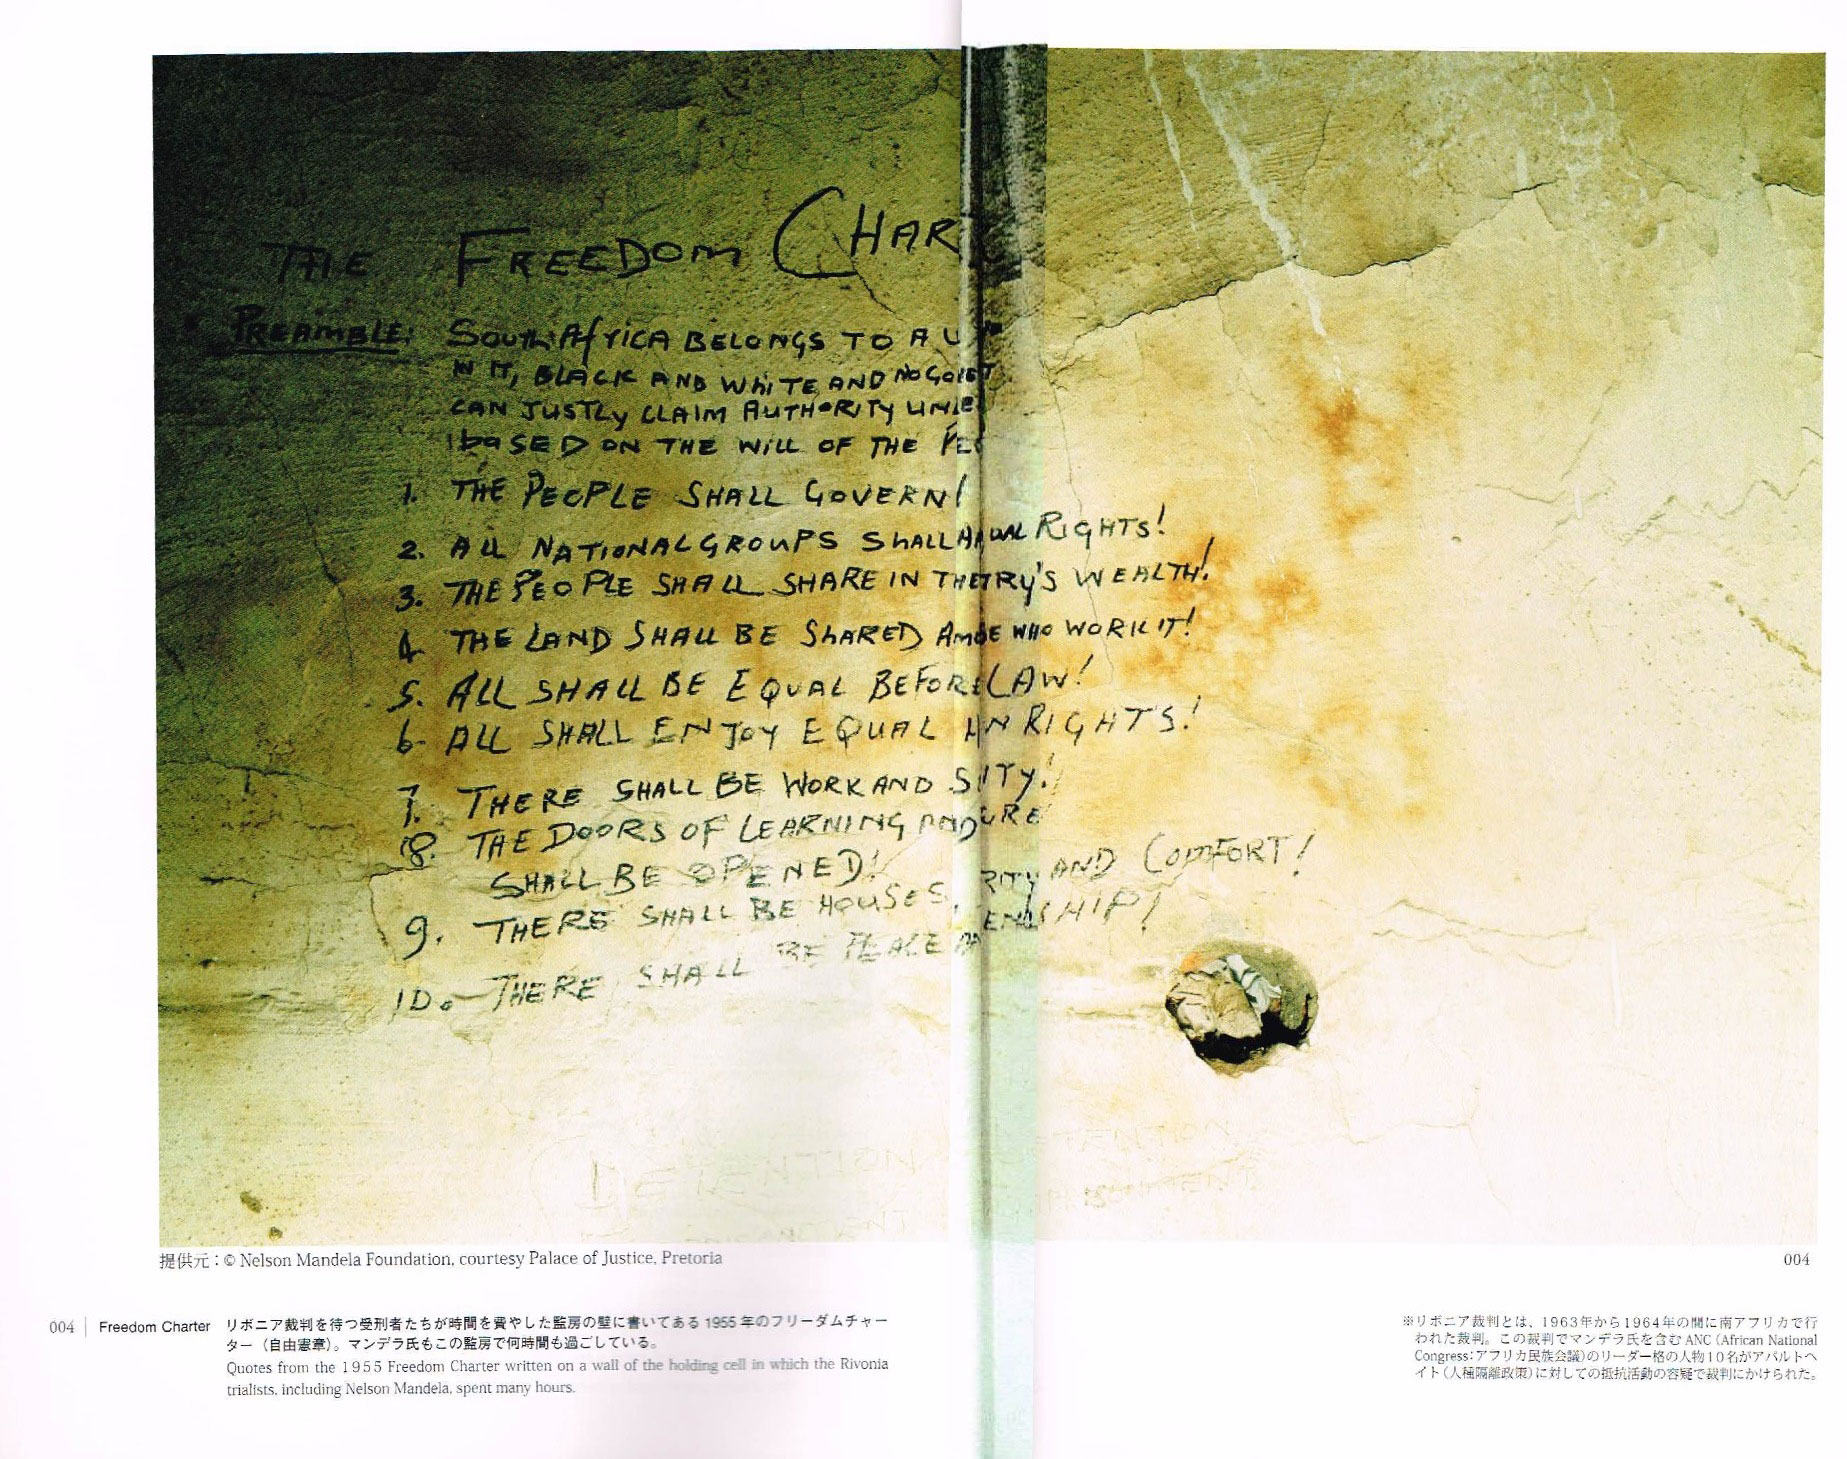 THE FREEDOM CHAR
PREAMBLE: SOUTH AFRICA BELONGS TO A
IN IT, BLACK AND WHITE AND NO
CAN JUSTLY CLAIM AUTHORITY
BASED ON THE WILL OF THE
1. THE PEOPLE SHALL GOVERN!
2. ALL NATIONAL GROUPS SHALL RIGHTS!
3. THE PEOPLE SHALL SHARE IN THE TRY'S WEALTH!
4. THE LAND SHALL BE SHARED WHO WORK IT!
5. ALL SHALL BE EQUAL BEFORE LAW!
6. ALL SHALL ENJOY EQUAL RIGHTS!
7. THERE SHALL BE WORK AND S ITY!
8. THE DOORS OF LEARNING AND URE
SHALL BE OPENED!
9. THERE SHALL BE HOUSES, RITY AND COMFORT!
10. THERE SHALL BE PEACE ENDSHIP!
DETENTION TENTION
提供元：© Nelson Mandela Foundation, courtesy Palace of Justice, Pretoria
004
004 | Freedom Charter リボニア裁判を待つ受刑者たちが時間を費やした監房の壁に書いてある 1955 年のフリーダムチャー
ター（自由憲章）。マンデラ氏もこの監房で何時間も過ごしている。
Quotes from the 1955 Freedom Charter written on a wall of the holding cell in which the Rivonia
trialists, including Nelson Mandela, spent many hours.
※リボニア裁判とは、1963年から1964年の間に南アフリカで行
われた裁判。この裁判でマンデラ氏を含む ANC（African National
Congress：アフリカ民族会議）のリーダー格の人物10名がアパルトヘ
イト（人種隔離政策）に対しての抵抗活動の容疑で裁判にかけられた。